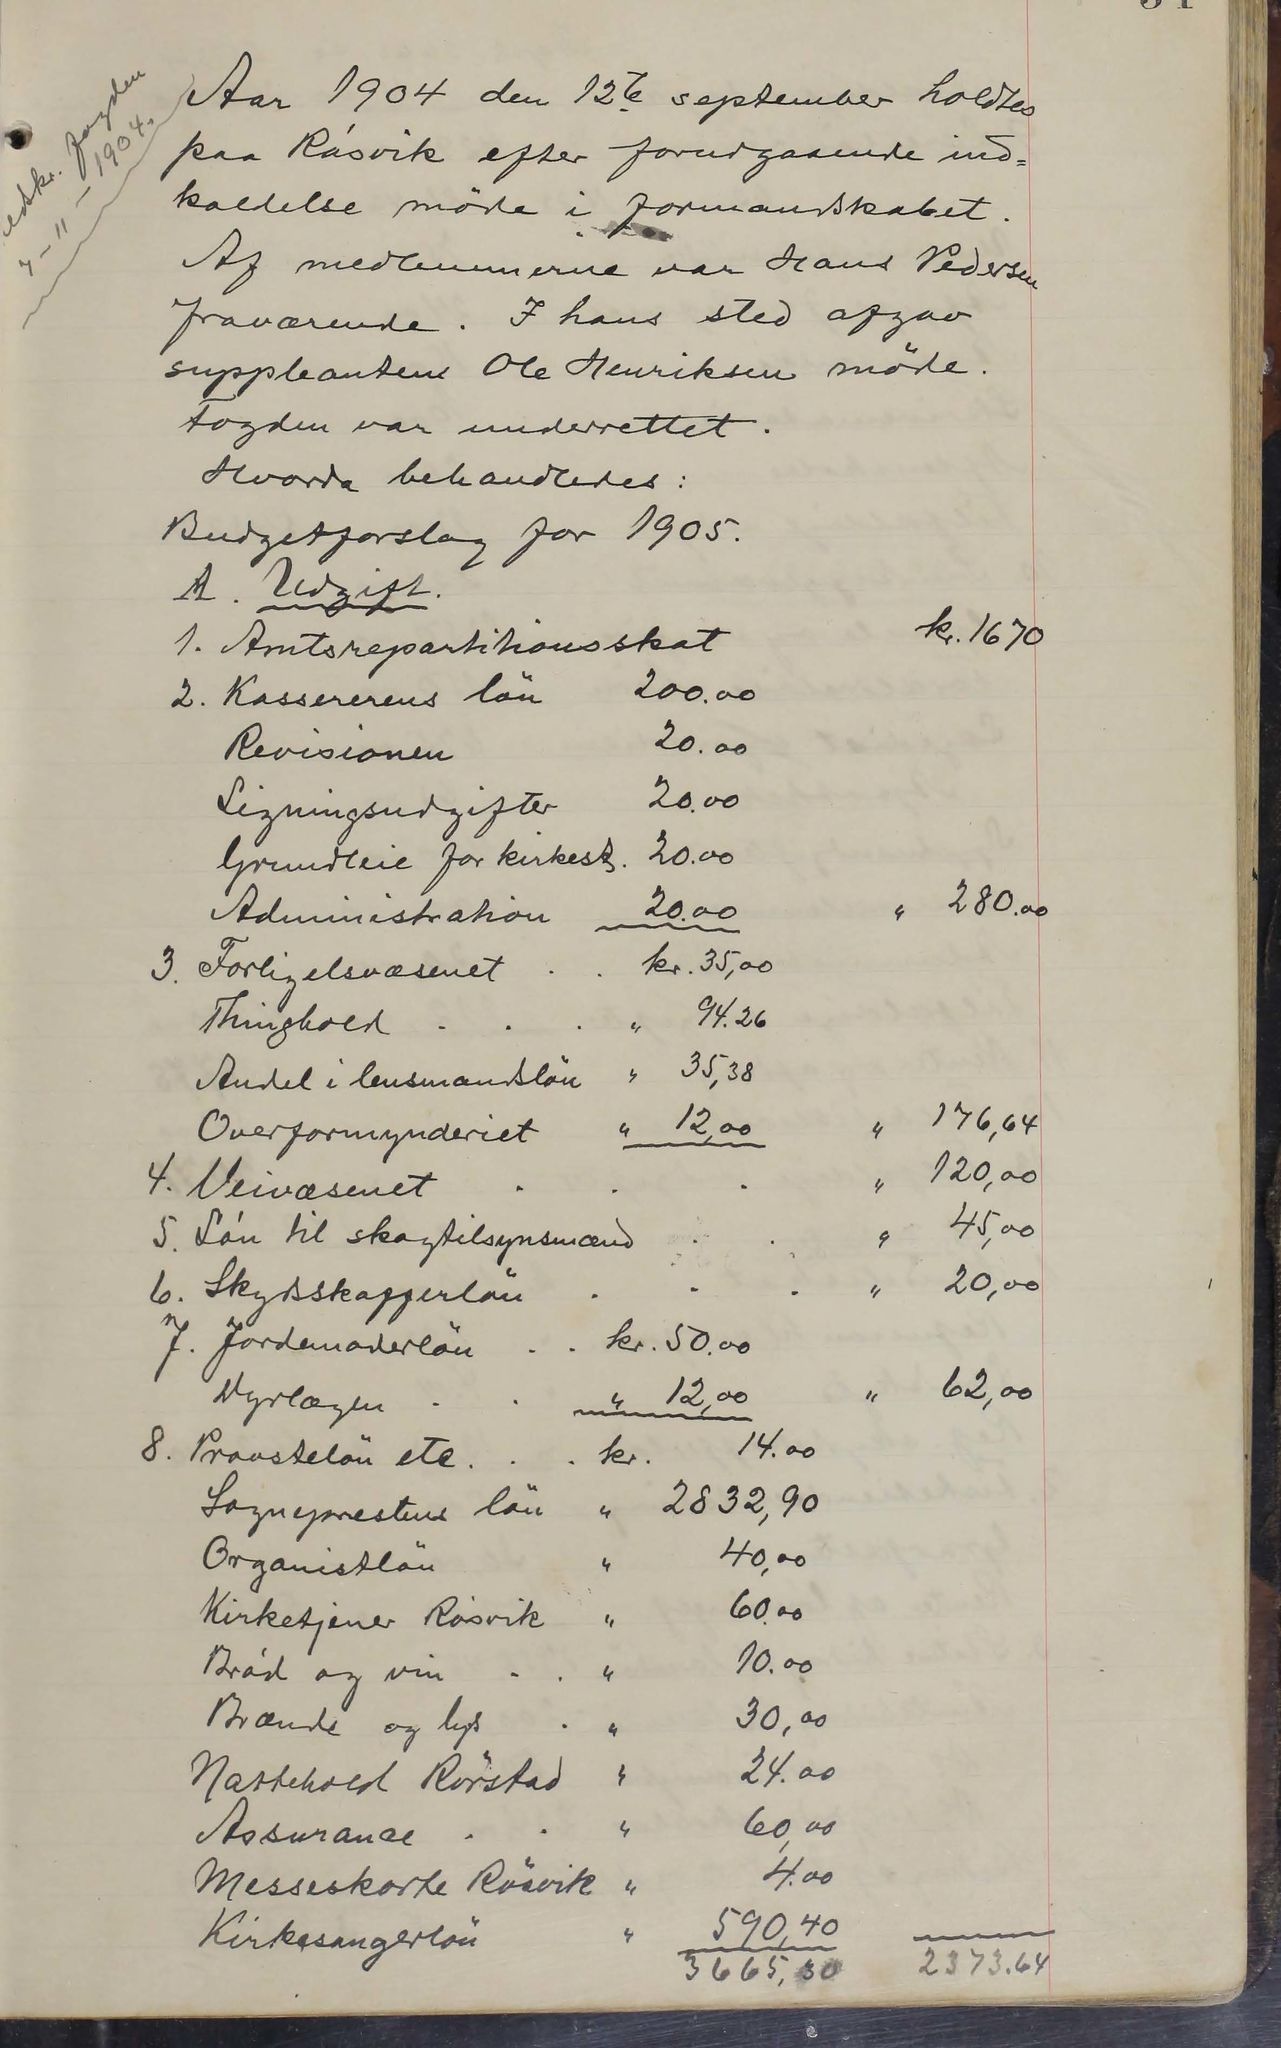 Aar 1904 den 12te september holdtes
paa Rösvik efter forudgaaende ind=
kaldelse möde i formandskabet.
Af medlemmerne var Hans Pedersen
fraværende. I hans sted afgav
suppleanten Ole Henriksen möde.
Fogden var underrettet.
Hvorda behandledes:
Budgetforslag for 1905.
A. Udgift.
1. Amtsrepartitionsskat kr. 1670
2. Kassererens lön 200.00
Revisionen 20.00
Ligningsudgifter 20.00
Grundleie for kirkest. 20.00
Administration 20.00 " 280.00
3. Forligelsvæsenet . . kr. 35,00
Thinghold . . . " 94.26
Andel i lensmandslön " 35,38
Overformynderiet " 12,00 " 176,64
4. Veivæsenet . . . " 120,00
5. Lön til skogtilsynsmænd . . " 45,00
6. Skydsskafferlön . . . " 20,00
7. Jordemoderlön . . kr. 50.00
Dyrlægen . . " 12,00 " 62,00
8. Provstelön etc. . . kr. 14.00
Sogneprestens lön " 2832,90
Organistlön " 40,00
Kirketjener Rösvik " 60.00
Bröd og vin . . " 10.00
Brænde og lys . " 30,00
Nattehold Rörstad " 24.00
Assurance . . " 60,00
Messeskorte Rösvik " 4.00
Kirkesangerlön " 590,40
3665,30 2373.64
fogden
7-11-1904.